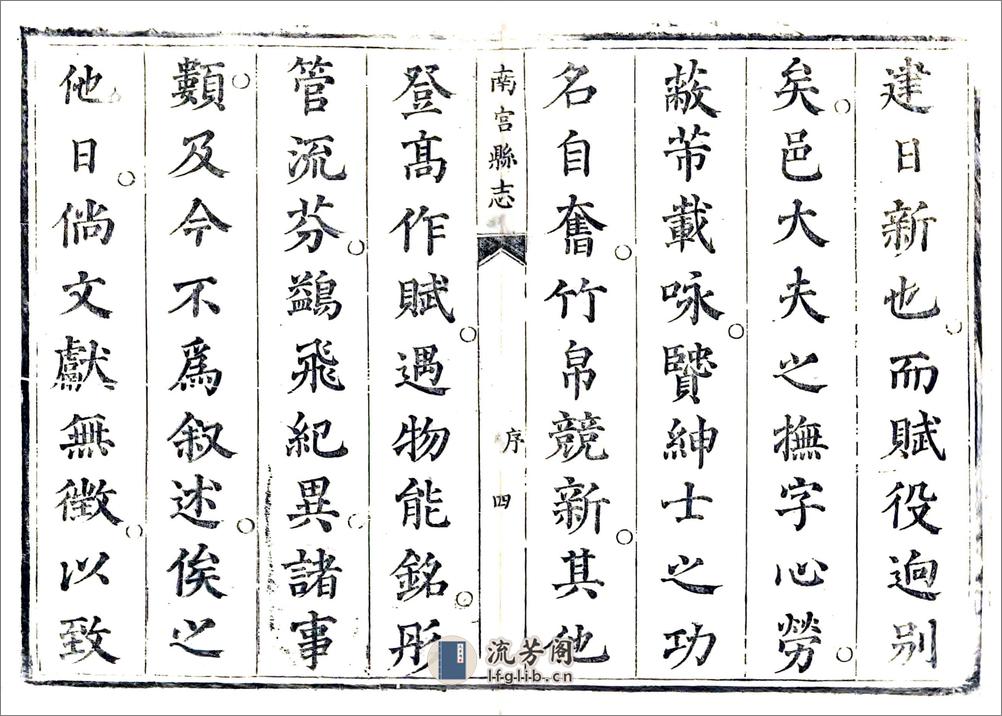 建日新也。而賦役逈别
矣。邑大夫之撫字心勞。
蔽芾載咏。賢紳士之功
名自奮。竹帛競新。其他
南宫縣志
序
四
登髙作賦。遇物能銘。彤
管流芬。鷁飛紀異。諸事
顭及今不爲叙述。俟之
他日。倘文獻無徵。以致
流芳阁
lfglib.cn